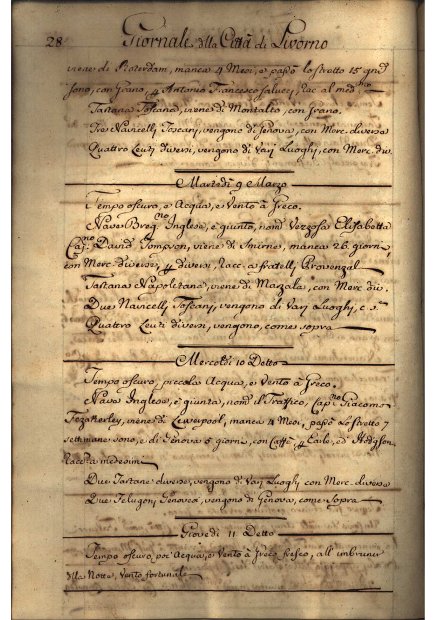 28
Giornale della Città di Livorno
viene di Roterdam, manca 4 Mesi, e passò lo stretto 15 gni
sono, con Grano, p Antonio Francesco Salucci, Racc al med.mo
Tartana Toscana, viene di Montalto, con grano.
Tre Navicelli Toscani, vengono di Genova, con Merc. diverse
Quattro Leuti diversi, vengono di Varj Luoghi, con Merc. div.
Martedì 9 Marzo
Tempo oscuro, e Acqua, e Vento à Greco.
Nave Breg.no Inglese, è giunta, nom.
Elisabetta
Cap.no David Tompson, viene di Smirne, manca 26 giorni
con Merc. diverse, p diversi Racc. a fratelli Provenzal
Tartana Napolitana, viene di Marzala, con Merc. div.
Due Navicelli Toscani, vengono di Varj Luoghi, c. s.
Quattro Leuti diversi, vengono, come sopra
Mercoldì 10 Detto
Tempo oscuro, piccola Acqua, e Vento à Greco.
Nave Inglese, è giunta, nom. il Trafico, Cap.no Giacomo
viene di Liverpool, manca 4 Mesi, passò Lo Stretto 7
settimane sono, e di Genova 5 giorni, con Caffè, p Earle, ed Hodgson
Racc. a medesimi
Due Tartane diverse, vengono di Varj Luoghi con Merc. diverse
Due Felugoni Genovesi, vengono di Genova, come sopra
Giovedì 11 Detto
Tempo oscuro, poc' Acqua, e Vento à Greco fresco, all' imbrunir
della Notte, Vento fortunale